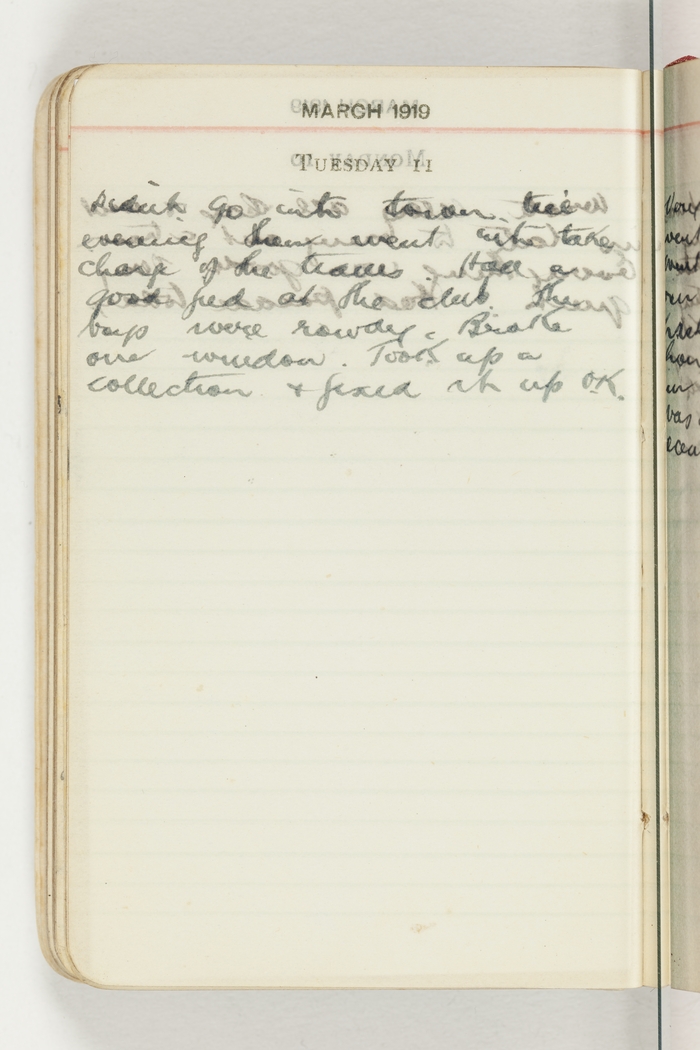 MARCH 1919
TUESDAY 11
Didnt go into town till
evening then went into take
charge of the teams. Had a
good feed at the club. The
boys were rowdy. Broke
one window. Took up a
collection & fixed it up OK.